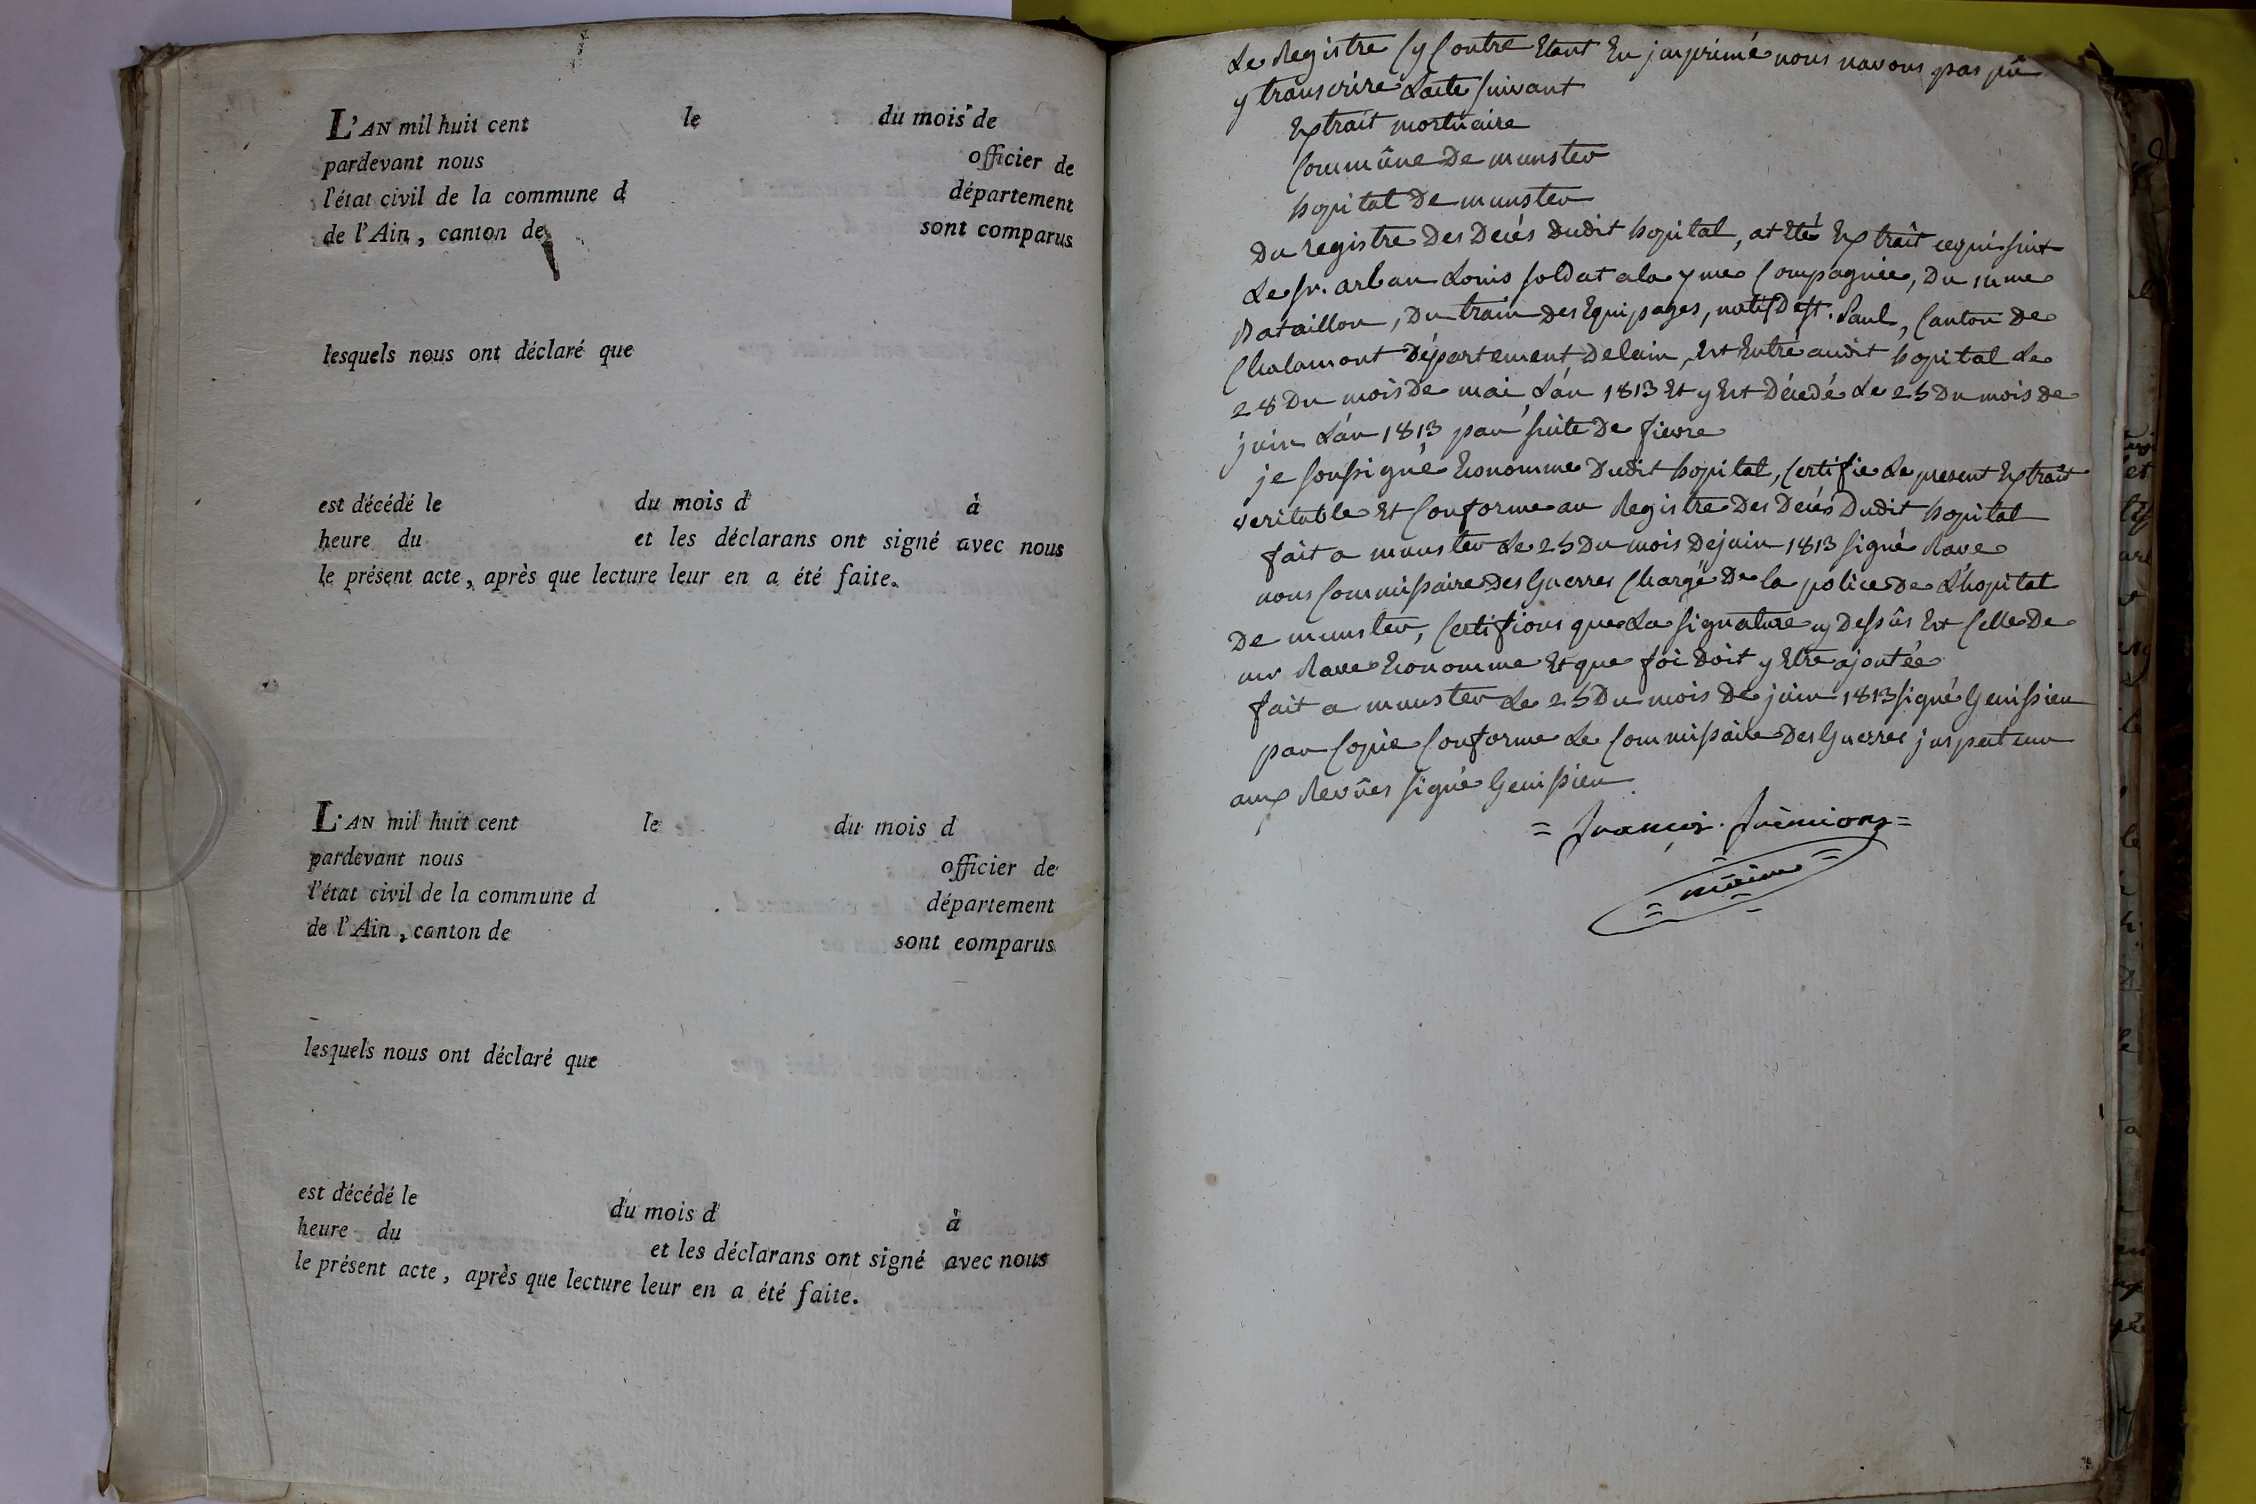 L'AN mil huit cent le du mois de
pardevant nous officier de
l'état civil de la commune d département
de l'Ain, canton de sont comparus
lesquels nous ont déclaré que
est décédé le du mois d à
heure du et les déclarans ont signé avec nous
le présent acte, après que lecture leur en a été faite.
L'AN mil huit cent le du mois d
pardevant nous officier de
l'état civil de la commune d département
de l'Ain, canton de sont comparus
lesquels nous ont déclaré que
est décédé le du mois d à
heure du et les déclarans ont signé avec nous
le présent acte, après que lecture leur en a été faite.
Le Registre Cy Contre Etant En jmprimé nous navons pas pû
y transcrire Lacte suivant
Extrait mortuaire
Commûne De munster
hopital De munster
Du registre Des Decés Dudit hopital, at Eté Extrait cequi suit
Le sr. arban Louis soldat a la 7me Compagnie, Du
Bataillon, Du train Des Equipages, natif De st. Paul, Canton De
Chalamont Département Delain, Est Entré audit hopital Le
28 Du mois De mai L'án 1813 Et y Est Décedé Le 25 Du mois De
juin L'án 1813 par suite De fievre
je soussigné Economme Dudit hopital, Certifie Le present Extrait
veritable Et Conforme au Registre Des Decés Dudit hopital
fait a munster Le 25 Du mois Dejuin 1813 signé Rave
nous Commissaire Des Guerres Chargé De la police De L'hopital
De munster, Certifions que La signature cy Dessûs Est Celle De
mr Rave Economme Et que foi Doit y Etre ajoutée
fait a munster Le 25 Du mois De juin 1813 signé Genissieu
par Copie Conforme Le Commissaire Des Guerres jnspecteur
aux Revûes signé Genissieu
= françois =
maire